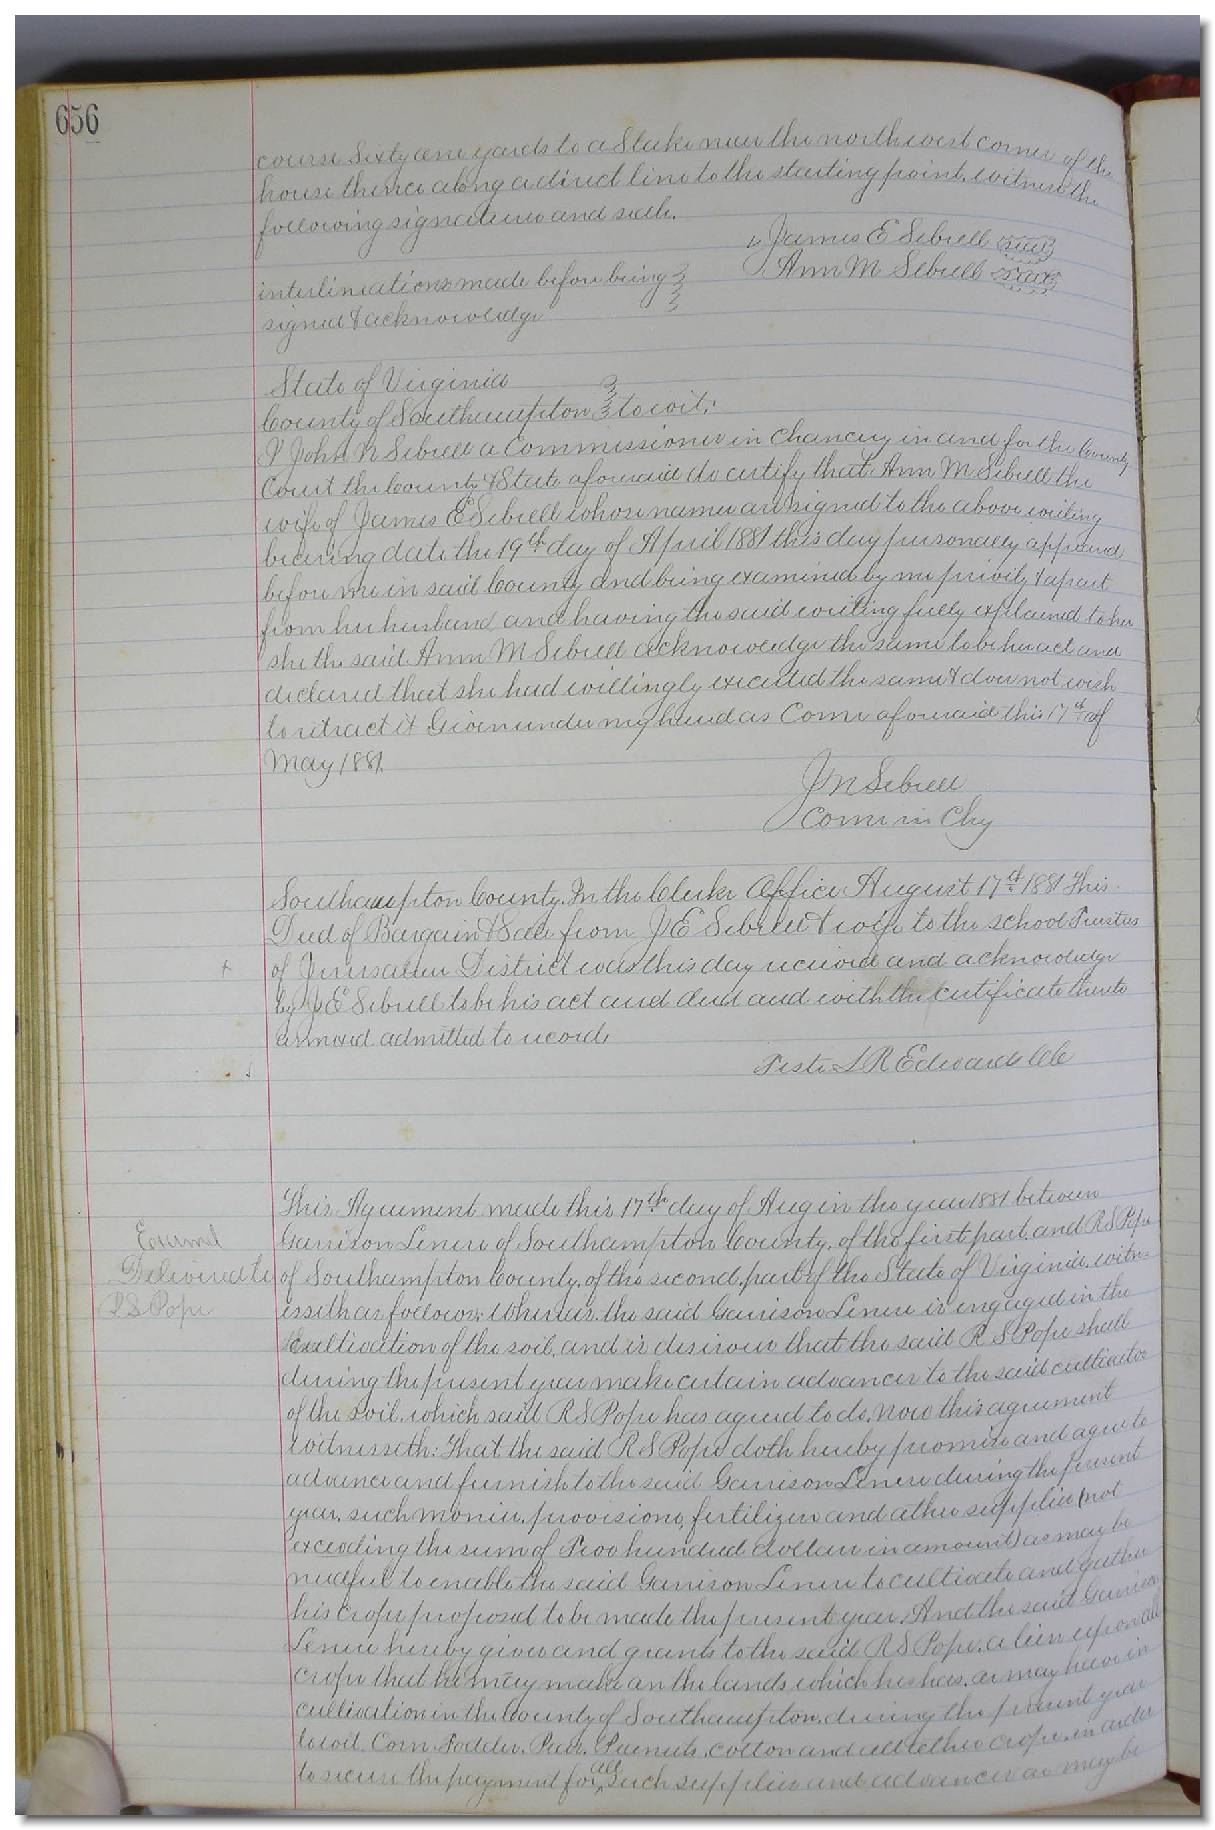 656
course Sixty one yards to a Stake near the northwest corner of the
house thence along a direct line to the starting point. witness the
following signatures and seals.
James E Sebrell seal
Ann M Sebrell seal
interlineations made before being
signed & acknowledge
State of Virginia
County of Southampton to wit:
I John N Sebrell a Commissioner in Chancery in and for the County
Court the County & State aforesaid do certify that Ann M Sebrell the
wife of James E Sebrell whose names are signed to the above writing
bearing date the 19th day of April 1881 this day personally appeared
before me in said County and being examined by me privily & apart
from her husband and having the said writing fully explained to her
she the said Ann M Sebrell acknowledge the same to be her act and
declared that she had willingly executed the same & does not wish
to retract it Given under my hand as Comr aforesaid this 17th of
May 1881.
J N Sebrell
Comr in Chy
Southampton County. In the Clerks Office August 17th 1881 This
Deed of Bargain & Sale from J E Sebrell & wife to the school Trustees
of Jerusalem District was this day received and acknowledge
by J E Sebrell to be his act and deed and with the certificate thereto
annexed admitted to record
Teste L R Edwards Clk
This Agreement made this 17th day of Aug in the year 1881 between
Garrison Lenere of Southampton County, of the first part and R S Pope
of Southampton County, of the second part of the State of Virginia. witn-
esseth as follows: Whereas. the said Garrison Lenere is engaged in the
cultivation of the soil, and is desirous that the said R S Pope shall
during the present year make certain advances to the said cultivator
of the soil. which said R S Pope has agreed to do. Now this agreement
witnesseth: That the said R S Pope doth hereby promise and agree to
advance and furnish to the said Garrison Lenere during the present
year, such monies, provisions, fertilizers and other supplies (not
exceeding the sum of Two hundred dollars in amount) as may be
needful to enable the said Garrison Lenere to cultivate and gather
his crops proposed to be made the present year. And the said Garrison
Lenere hereby gives and grants to the said R S Pope. a lien upon all
crops that he may make on the lands which he has. or may have in
cultivation in the County of Southampton. during the present year
to wit. Corn. Fodder. Peas. Peanuts. cotton and all other crops. in order
to secure the payment for all such supplies and advances as may be
Examd
Delivered to
R S Pope